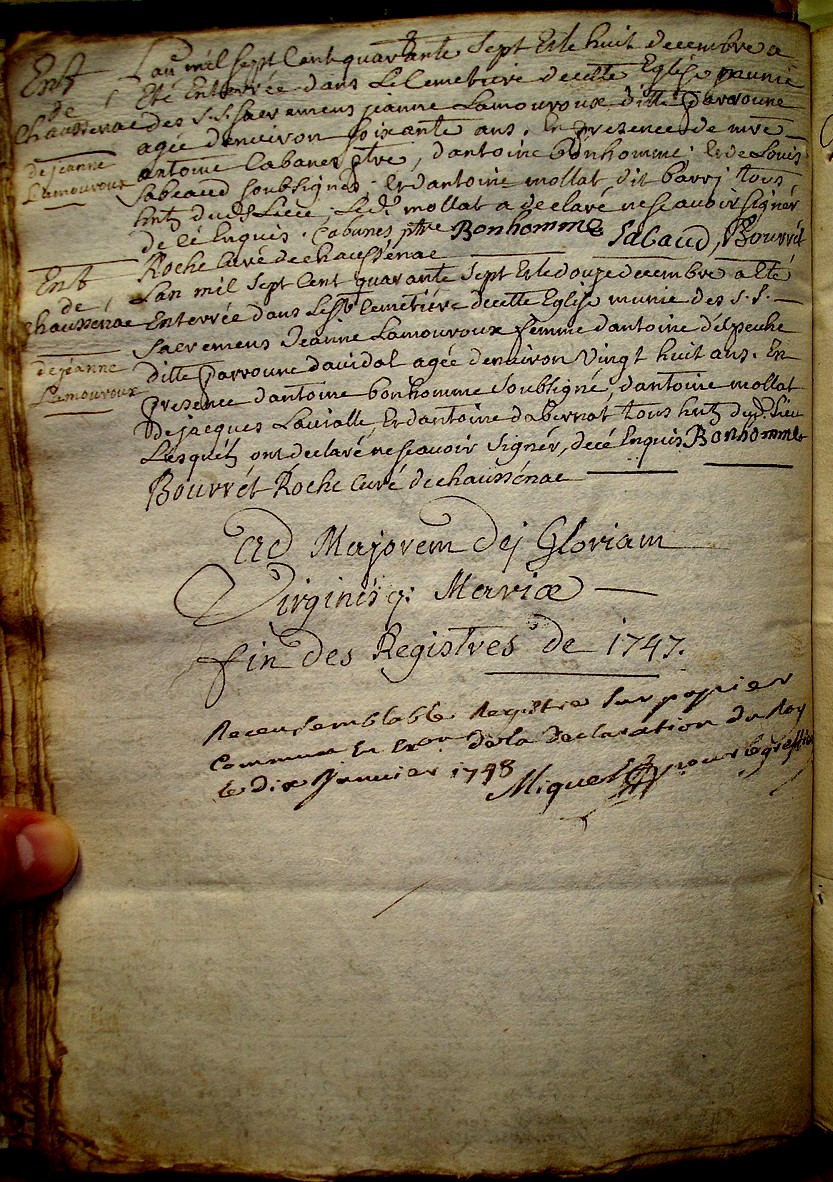 Ent
de
Chaussenac
de jeanne
Lamouroux
L'an mil sept Cent quarante sept Et le huit decembre a
Eté Enterrée dans Le Cemetiere de cette Eglise munie
des S.S. sacremens jeanne Lamouroux ditte parroune
agée denviron soixante ans. En presence de mre
antoine Cabanes ptre, dantoine bonhomme, Et de Louis
Sabeaud soubsignés. Et dantoine mollat dit barri tous
hnts dud. Lieu; Led. mollat a declaré ne scavoir signer
de cé Enquis. Cabanes ptre Bonhomme Sabaud, Bourrét
Roche Curé de chaussénac
Ent
de
chaussénac
de jéanne
Lamouroux
L'an mil sept Cent quarante sept Et le douze decembre a Eté
Enterrée dans Lesd. Cemétiére de cette Eglise munie des S.S.
Sacremens Jeanne Lamouroux femme dantoine délpeuhe
ditte parroune davidal agée denviron vingt huit ans. En
presence dantoine bonhomme soubsigné, dantoine mollat
de jacques Lavialle, Et dantoine dabernat tous hnts dud. Lieu
Lesquéls ont declaré ne scavoir signér, de cé Enquis Bonhomme
Bourrét Roche Curé de chaussénac
Ad Majorem Dej Gloriam
Virginisq: Mariæ
fin des Registres de 1747.
Receu semblable Registre sur papier
commun En Exon de la Declaration du Roy
le dix Janvier 1748 Miquel pour le greffier